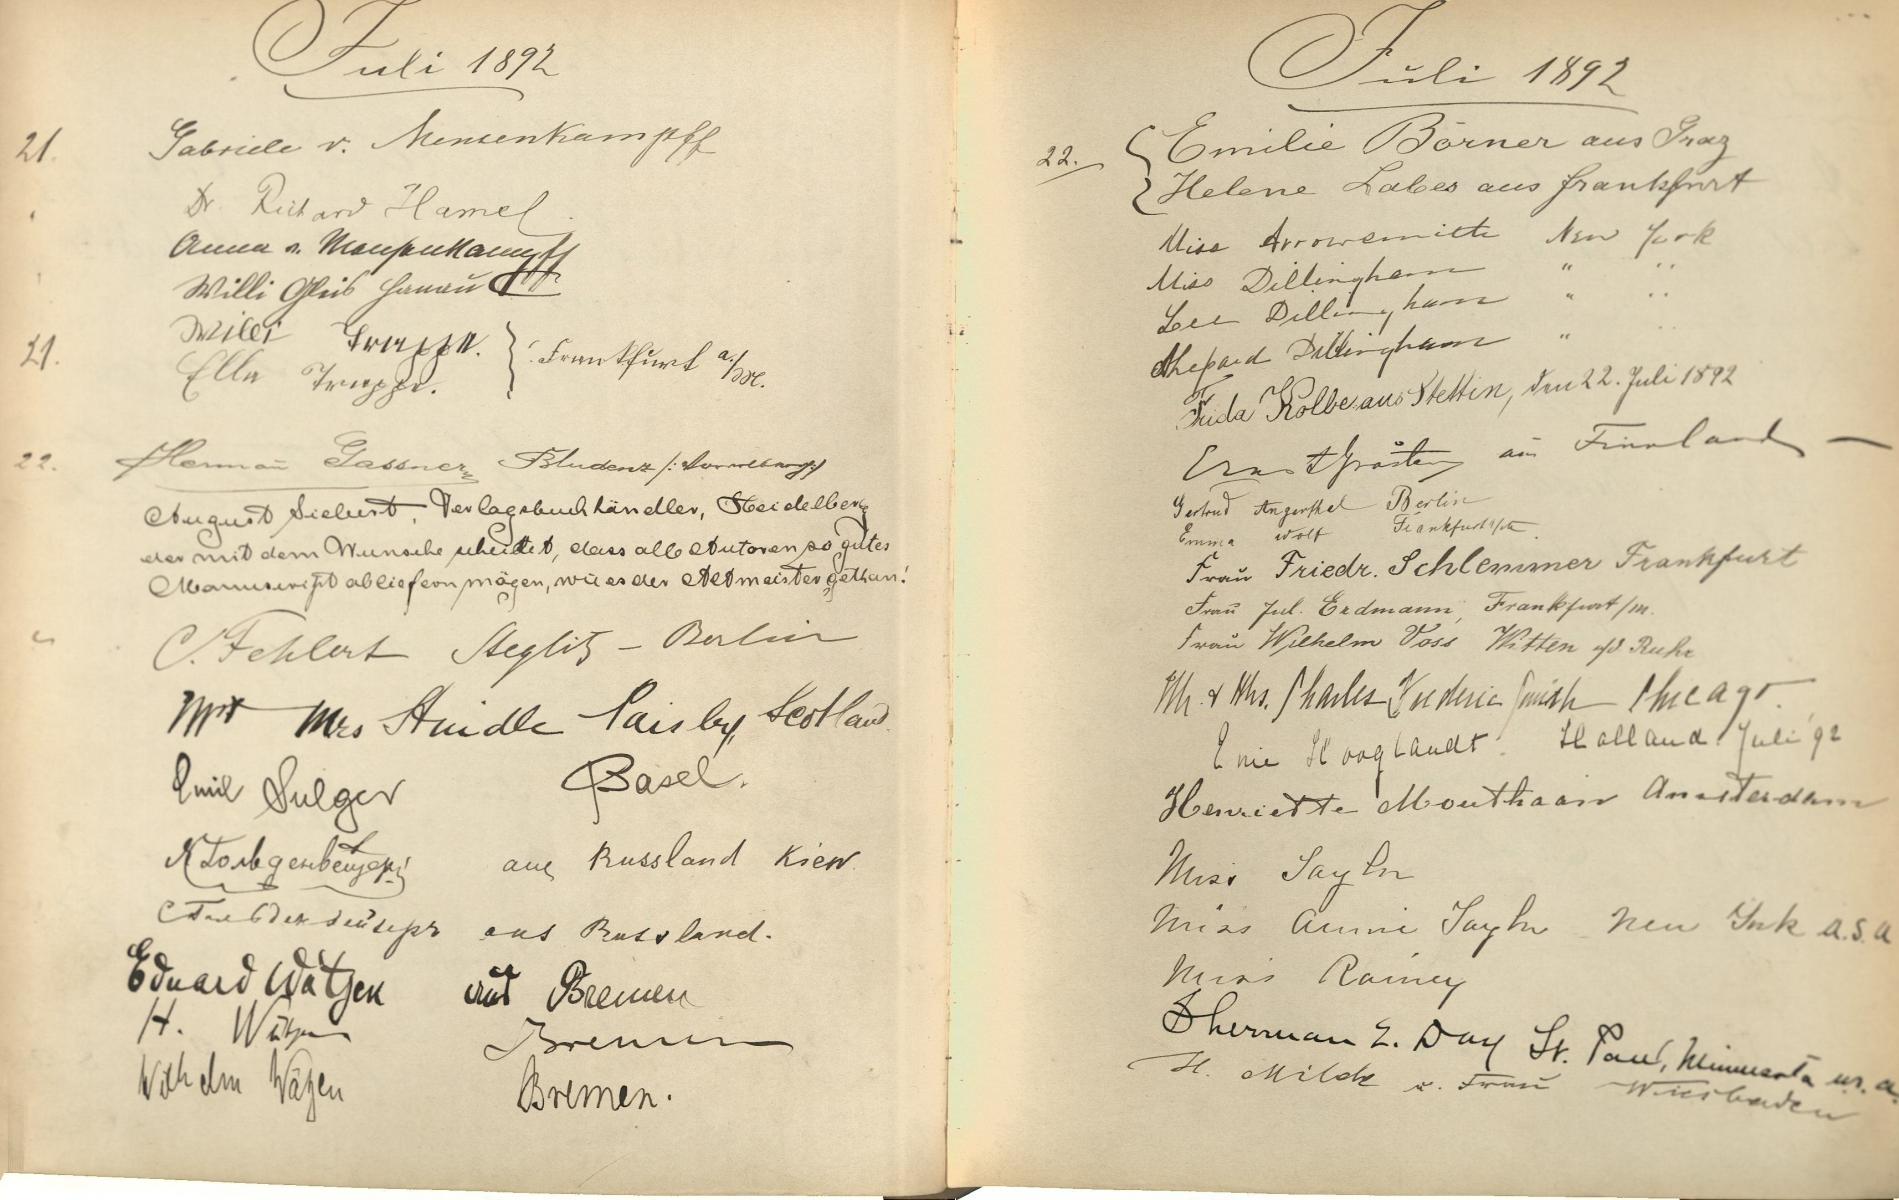 Juli 1892
21. Gabriele v. Mensenkampff
Dr. Richard Hamel
Anna v. Mensenkampff
Willi Hanau
Willi Trappe.
21. Ella Trappe. Frankfurt a/M.
22. Hermañ Gassner Bludenz
August Siebert, Verlagsbuchhändler, Heidelberg
der mit dem Wunsche scheidet, dass alle Autoren so gutes
Manuscript abliefern mögen, wie es der Altmeister gethan!
C. Fehlert Steglitz – Berlin
Mrs Paisley, Scotland
Emil Sulger Basel.
aus Russland Kiew
aus Russland.
Eduard Wätjen aus Bremen
H. Wätjen Bremen
Wilhelm Wätjen Bremen.
Juli 1892
22. Emilie Börner aus Graz
Helene Labes aus Frankfurt
Miss Arrowsmith New York
Miss Dillingham " "
Lee Dillingham " "
Shepard Dillingham "
Frida Kolbe aus Stettin, den 22. Juli 1892
Ernst aus Finnland
Gertrud Angerthal Berlin
Emma Wolf Frankfurt a/M.
Frau Friedr. Schlemmer Frankfurt
Frau Jul. Erdmann, Frankfurt/M.
Frau Wilhelm Voss Witten a/d Ruhr
Mr. & Mrs. Charles Frederic Smith Chicago.
Hooglandt. Holland. Juli '92
Henriette Mouthaan Amsterdam
Miss Taylor
Miss Annie Taylor New York U.S.A
Miss Rainey
Sherman E. Day St. Paul, Minnesota U.S.A.
H. Milch u. Frau Wiesbaden